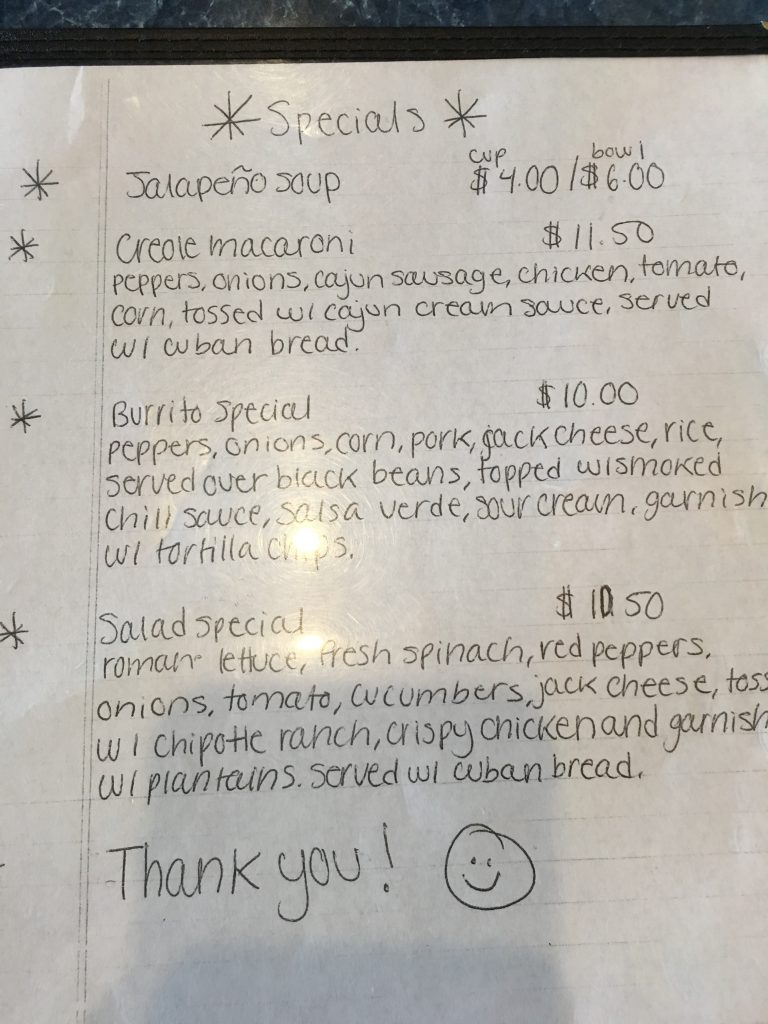 * Specials *
cup bowl
* Jalapeño soup $4.00 / $6.00
* Creole macaroni $11.50
peppers, onions, cajun sausage, chicken, tomato,
corn, tossed w/ cajun cream sauce, served
w/ cuban bread.
* Burrito special $10.00
peppers, onions, corn, pork, jack cheese, rice,
served over black beans, topped w/smoked
chili sauce, salsa verde, sour cream, garnish
w/ tortilla chips.
* Salad special $10.50
roman lettuce, fresh spinach, red peppers,
onions, tomato, cucumbers, jack cheese, toss
w/ chipotle ranch, crispy chicken and garnish
w/ plantains. served w/ cuban bread.
Thank you!